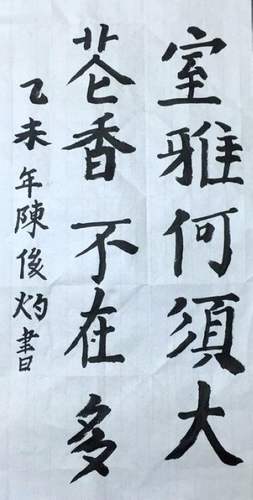 室雅何須大
花香不在多
乙未年陳俊灼書